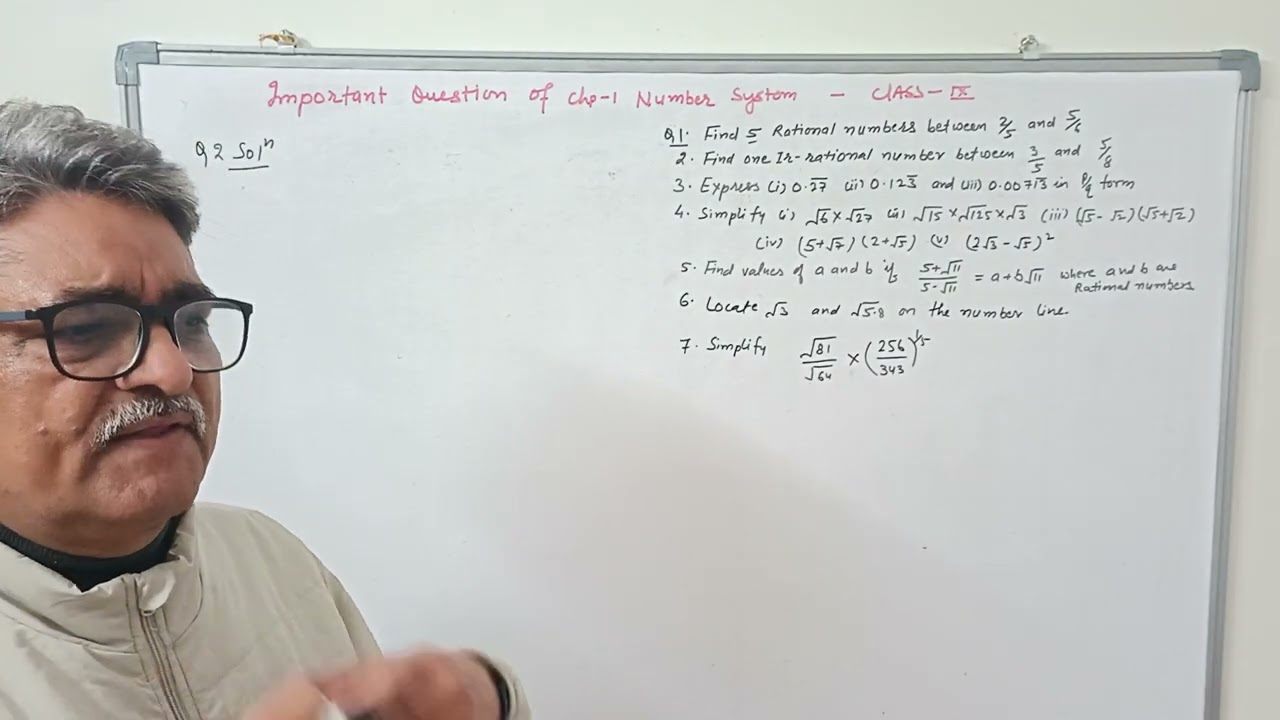 Important Question of Chp-1 Number System - CLASS-IX
Q 2 Solⁿ
Q1. Find 5 Rational numbers between 2/5 and 5/6
2. Find one Ir-rational number between 3/5 and 5/8
3. Express (i) 0.2̅7̅ (ii) 0.123̅ and (iii) 0.0071̅3̅ in P/q form
4. Simplify (i) √6 × √27 (ii) √15 × √125 × √3 (iii) (√5 - √2)(√5+√2)
(iv) (5+√7)(2+√5) (v) (2√3 - √5)²
5. Find values of a and b if (5+√11)/(5-√11) = a+b√11 where a and b are
Rational numbers
6. Locate √3 and √5.8 on the number line.
7. Simplify √81/√64 × (256/343)